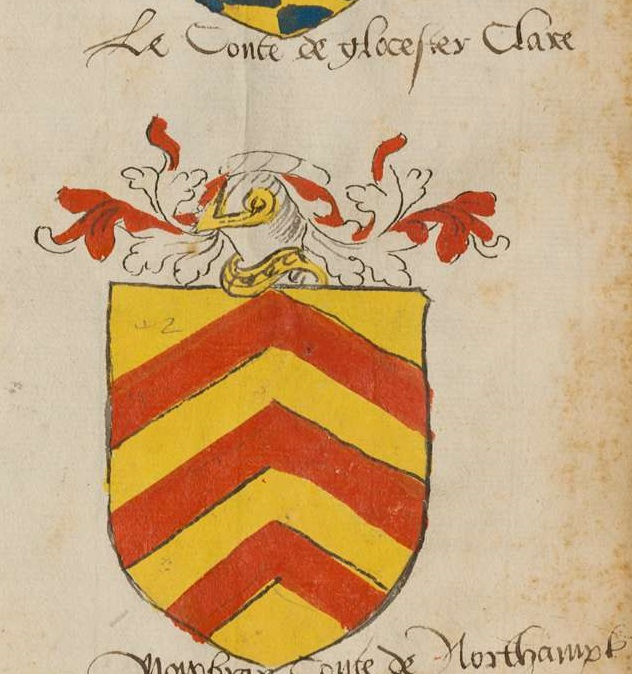 Le Conte de glocester Clare
2
Conte de Northampt